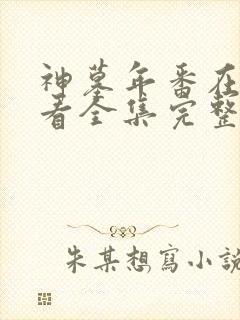 神墓年番在
看全集完整
朱某想寫小說